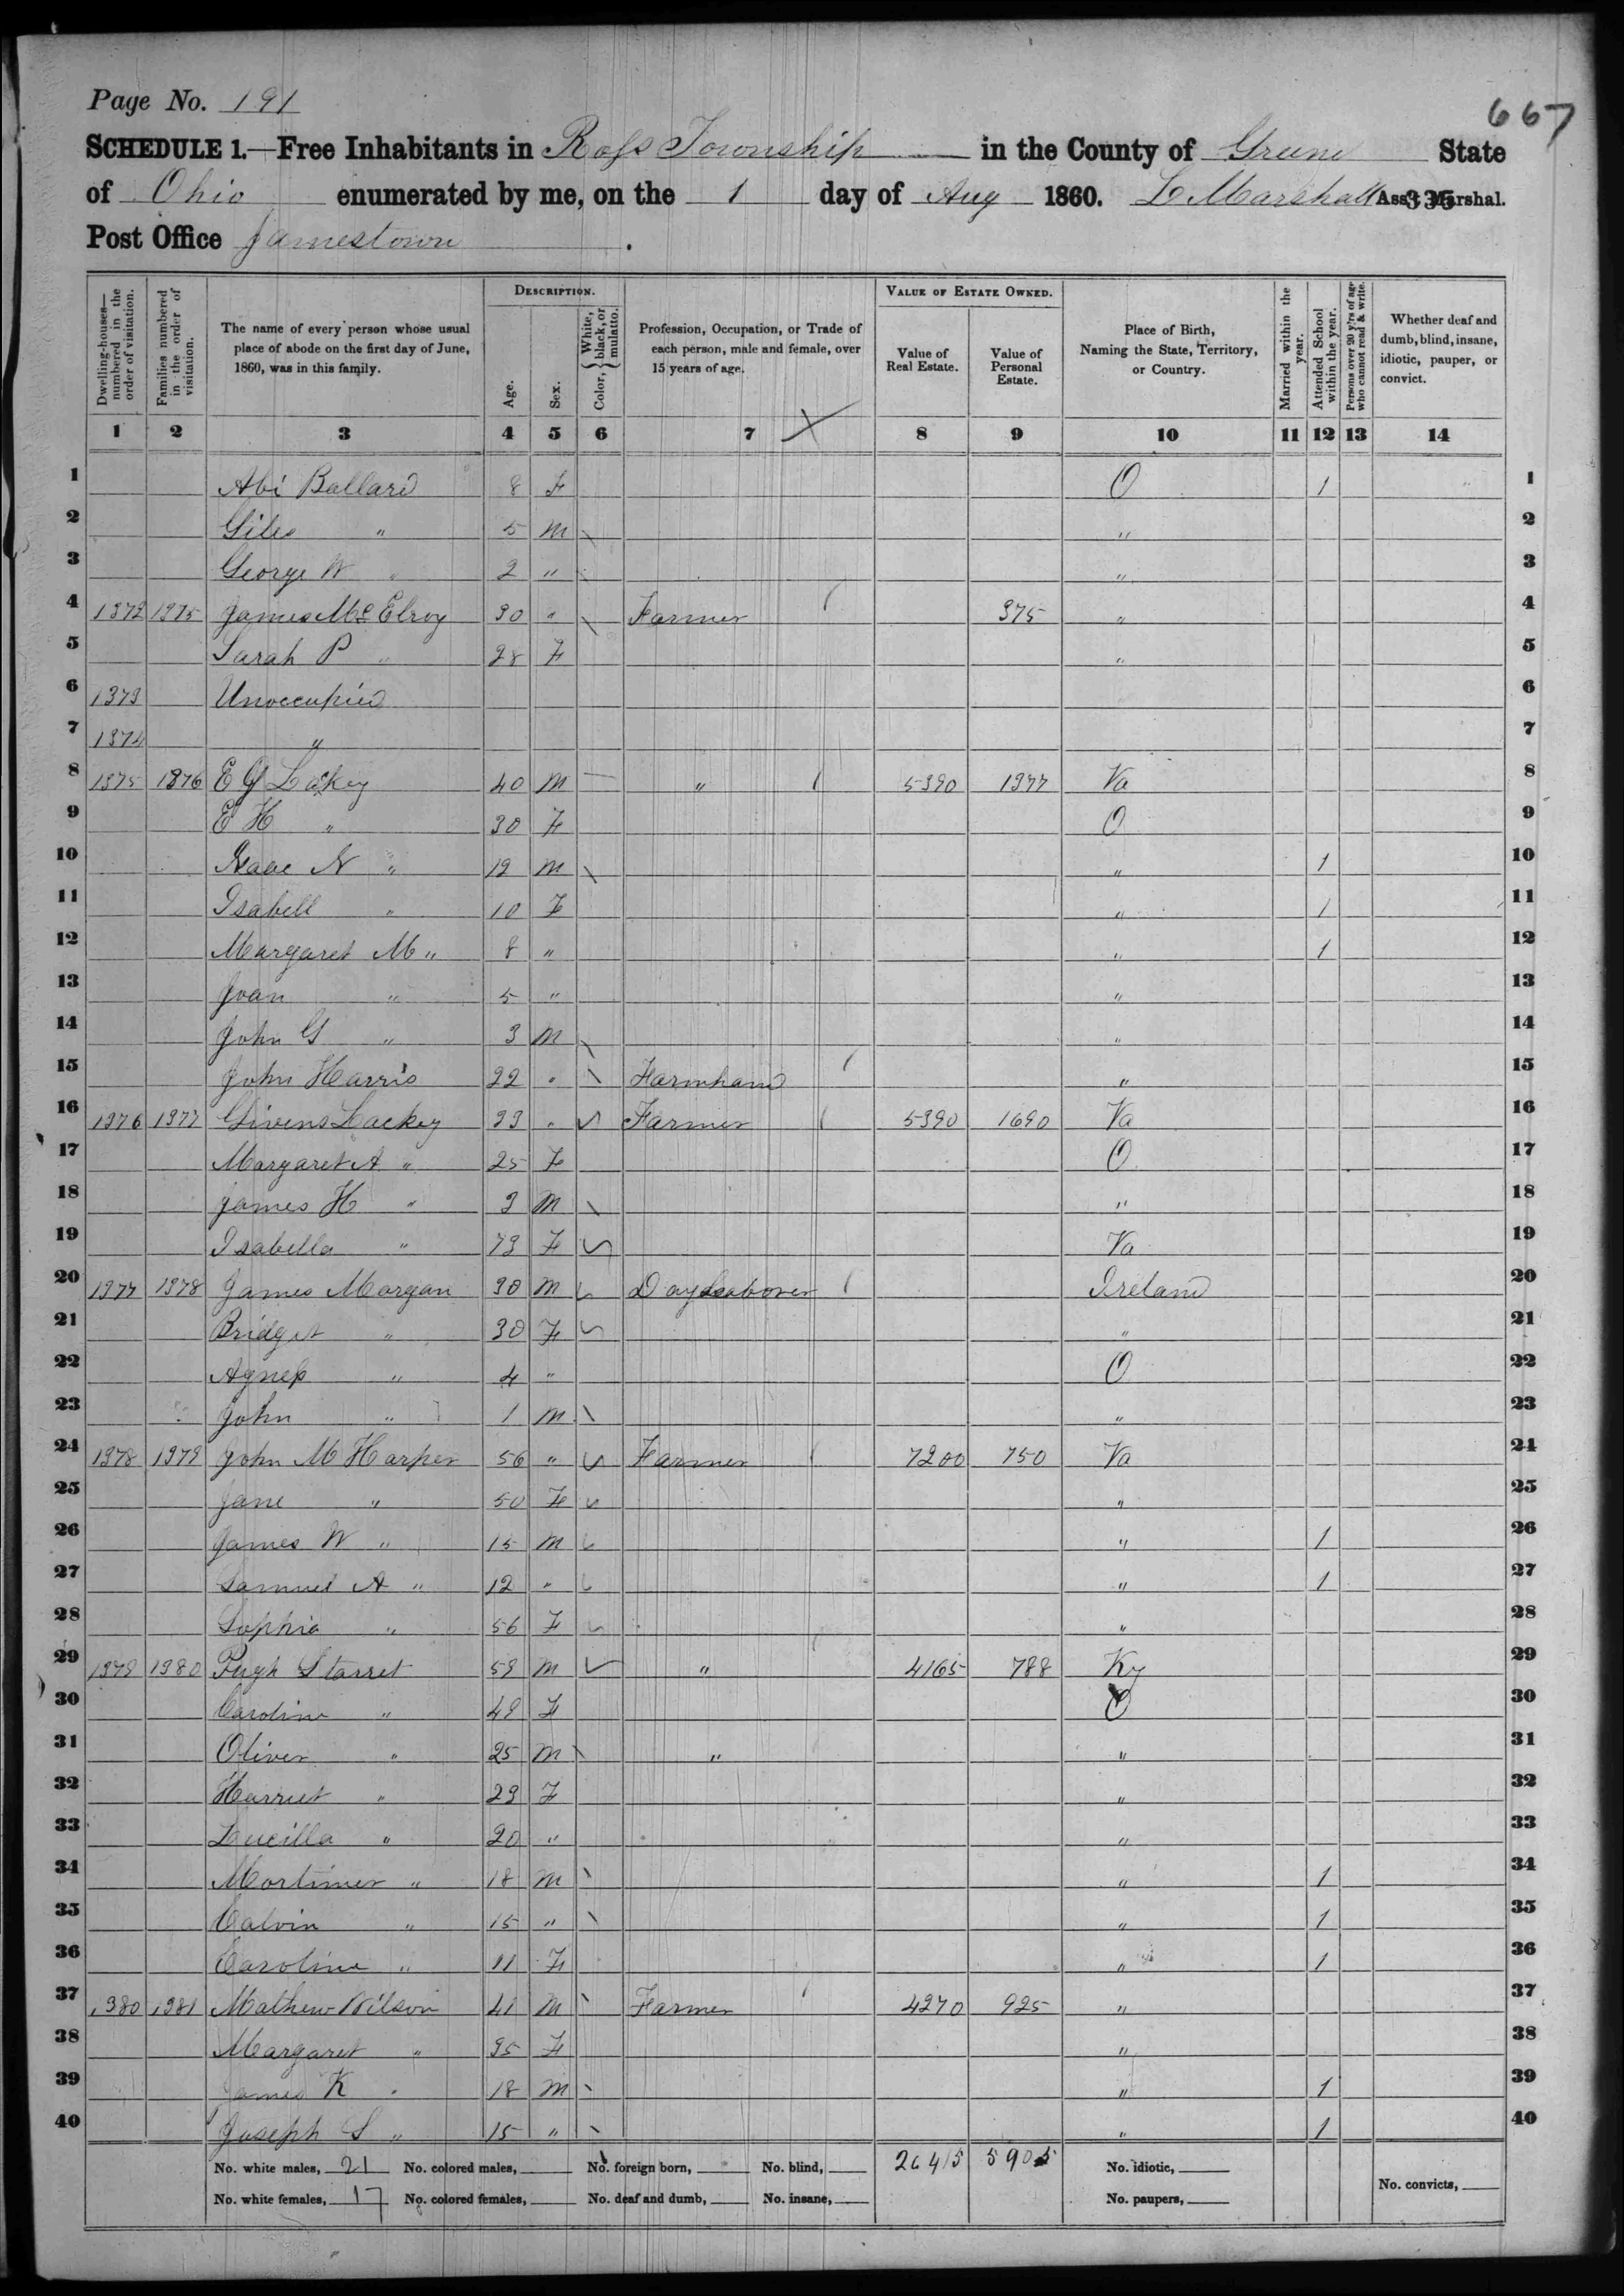 Page No. 191
667
SCHEDULE 1.—Free Inhabitants in Ross Township in the County of Greene State
of Ohio enumerated by me, on the 1 day of Aug 1860. L Marshall Ass't Marshal.
335
Post Office Jamestown.
Dwelling-houses—numbered in the order of visitation. Families numbered in the order of visitation. The name of every person whose usual place of abode on the first day of June, 1860, was in this family. DESCRIPTION. Age. Sex. Color, {White, black, or mulatto. Profession, Occupation, or Trade of each person, male and female, over 15 years of age. VALUE OF ESTATE OWNED. Value of Real Estate. Value of Personal Estate. Place of Birth, Naming the State, Territory, or Country. Married within the year. Attended School within the year. Persons over 20 y'rs of age who cannot read & write. Whether deaf and dumb, blind, insane, idiotic, pauper, or convict.
1 2 3 4 5 6 7 X 8 9 10 11 12 13 14
1 Abi Ballard 8 F O 1 1
2 Giles " 5 M " 2
3 George W " 2 " " 3
4 1372 1375 James McElroy 30 " Farmer 375 " 4
5 Sarah P " 28 F " 5
6 1373 Unoccupied 6
7 1374 " 7
8 1375 1376 E G Lackey 40 M " 5390 1377 Va 8
9 E H " 30 F O 9
10 Isaac N " 12 M " 1 10
11 Isabell " 10 F " 1 11
12 Margaret M " 8 " " 1 12
13 Joan " 5 " " 13
14 John G " 3 M " 14
15 John Harris 22 " Farmhand " 15
16 1376 1377 Givens Lackey 33 " Farmer 5390 1690 Va 16
17 Margaret A " 25 F O 17
18 James H " 3 M " 18
19 Isabella " 73 F Va 19
20 1377 1378 James Morgan 30 M Day Labover Ireland 20
21 Bridget " 30 F " 21
22 Agness " 4 " O 22
23 John " 1 M " 23
24 1378 1379 John M Harper 56 " Farmer 7200 750 Va 24
25 Jane " 50 F " 25
26 James W " 15 M " 1 26
27 Samuel A " 12 " " 1 27
28 Sophia " 56 F " 28
29 1379 1380 Pugh Starret 59 M " 4165 788 Ky 29
30 Caroline " 49 F O 30
31 Oliver " 25 M " " 31
32 Harriet " 23 F " 32
33 Lucilla " 20 " " 33
34 Mortimer " 18 M " 1 34
35 Calvin " 15 " " 1 35
36 Caroline " 11 F " 1 36
37 1380 1381 Mathew Wilson 41 M Farmer 4270 925 " 37
38 Margaret " 35 F " 38
39 James K " 18 M " 1 39
40 Joseph S " 15 " " 1 40
No. white males, 21 No. colored males, No. foreign born, No. blind, 26415 5905 No. idiotic, No. convicts,
No. white females, 17 No. colored females, No. deaf and dumb, No. insane, No. paupers,